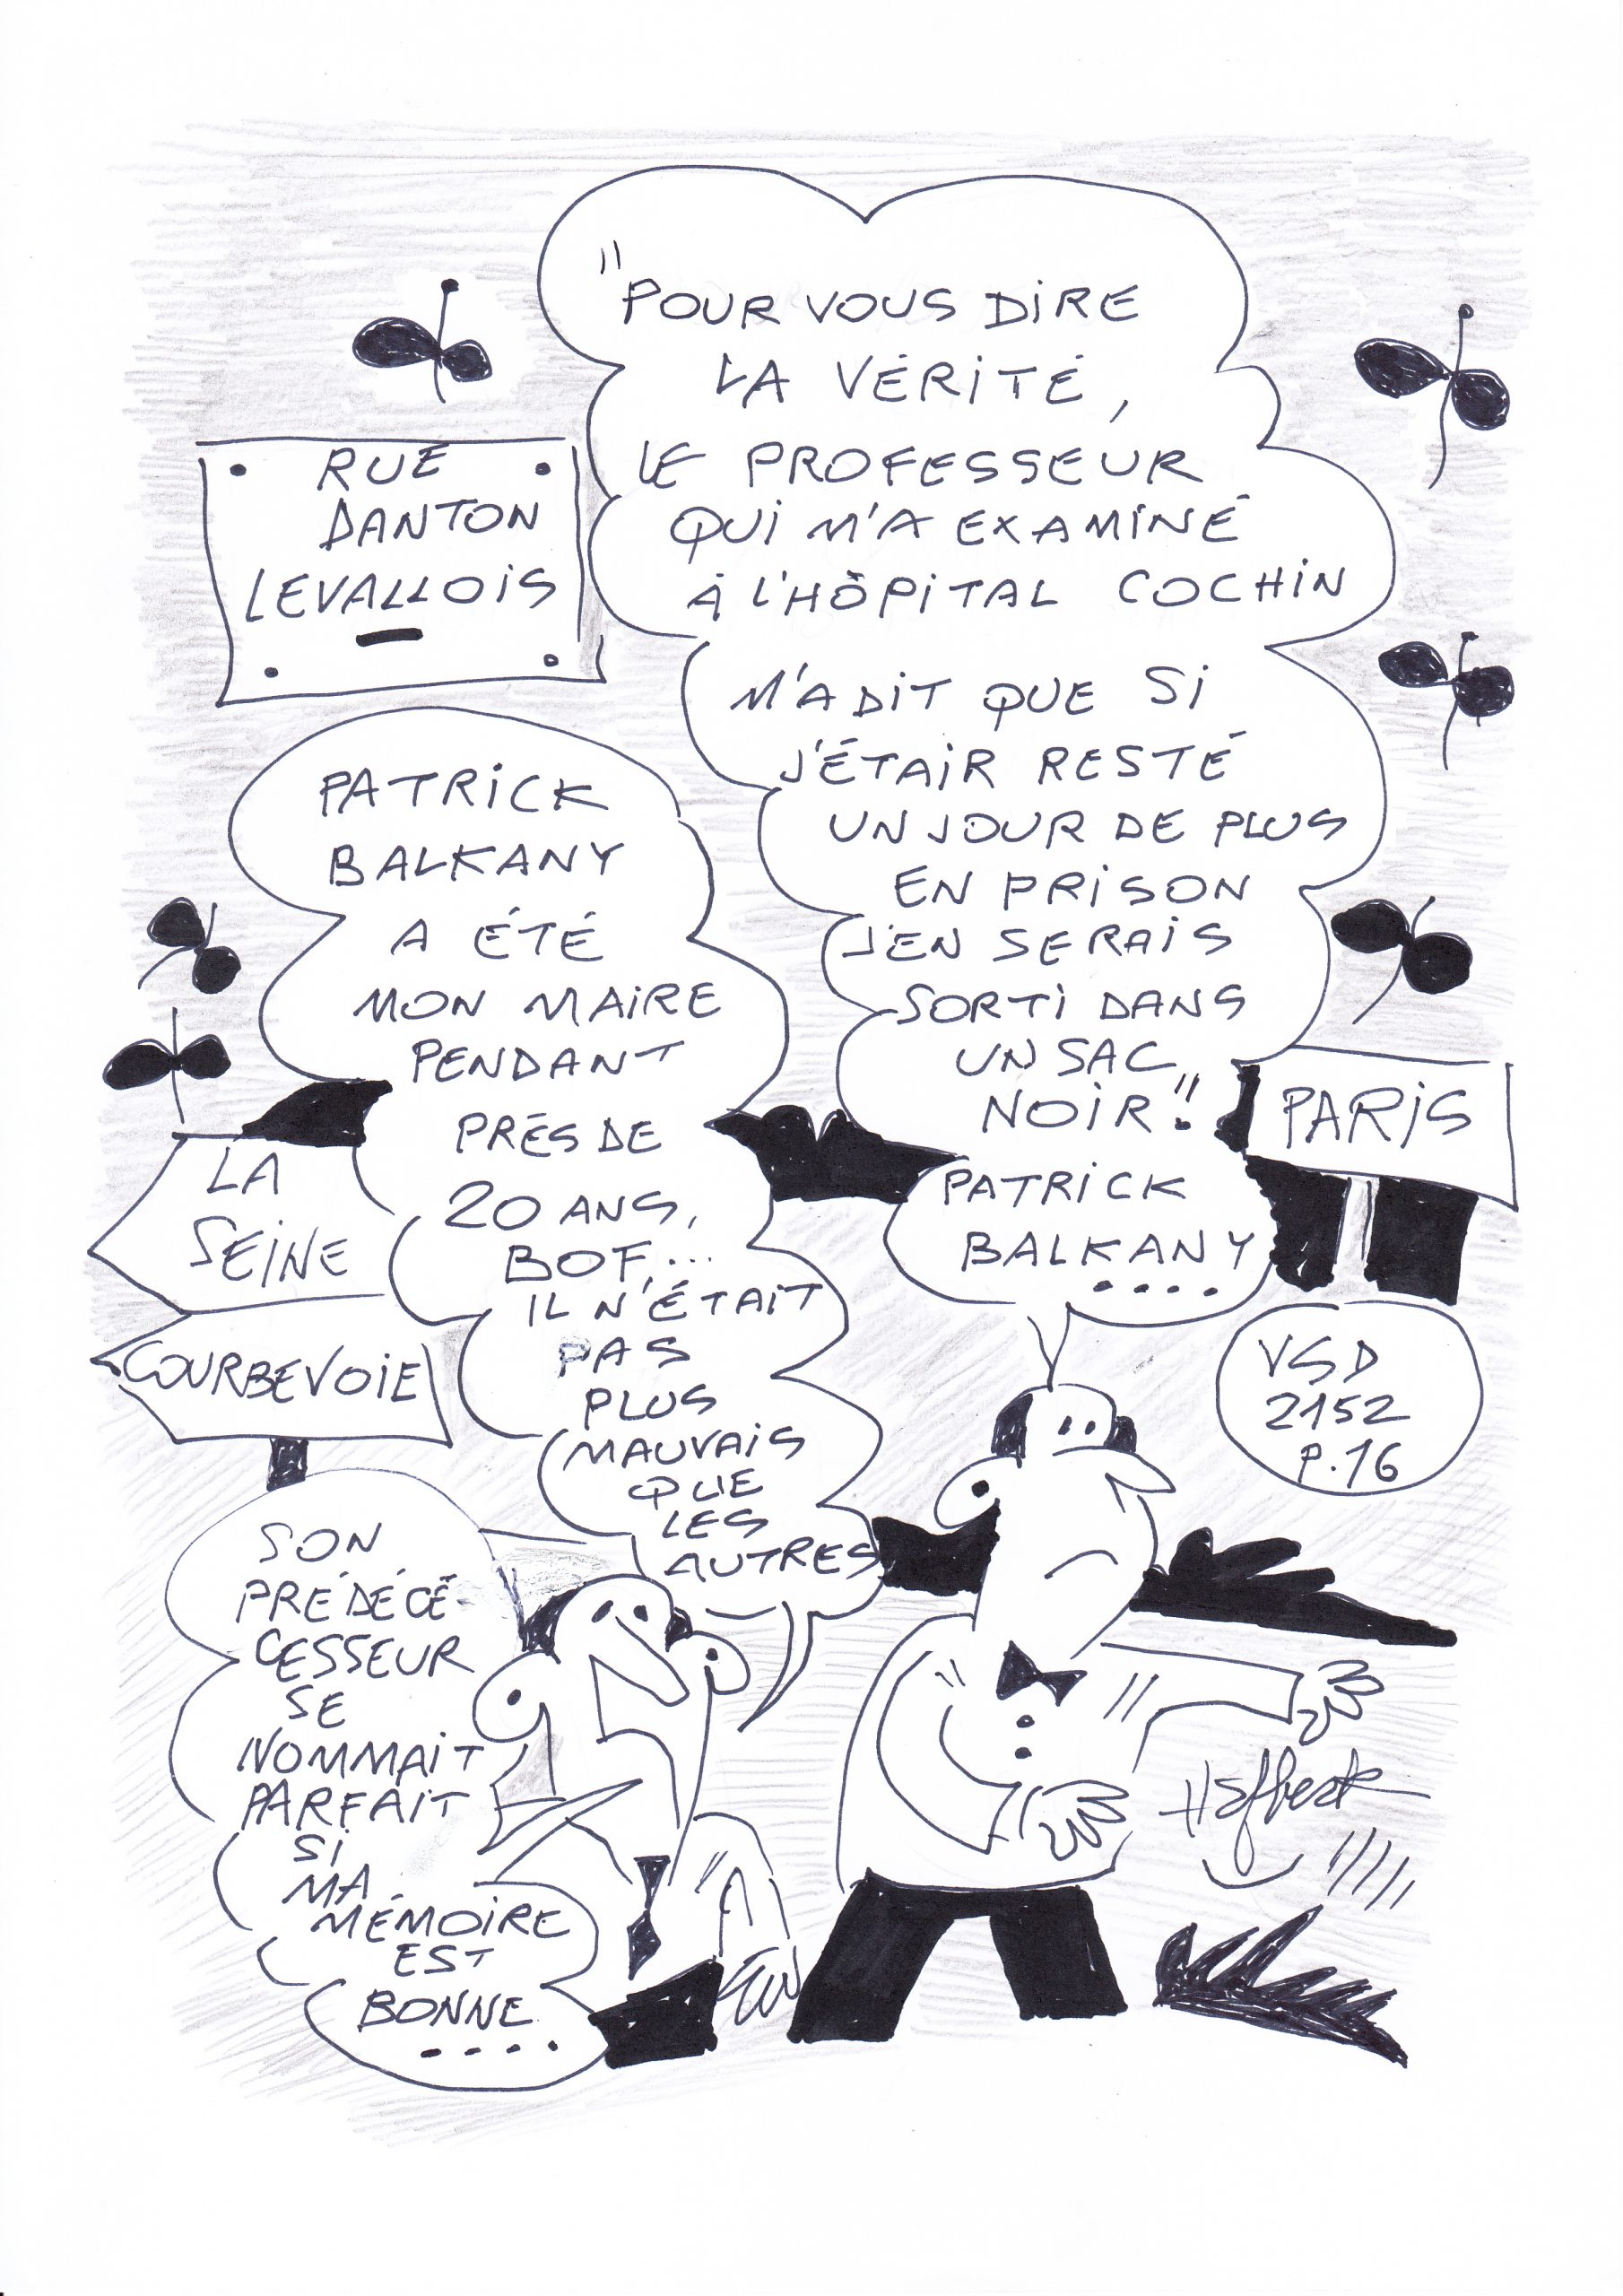 "POUR VOUS DIRE
LA VÉRITÉ,
LE PROFESSEUR
QUI M'A EXAMINÉ
À L'HÔPITAL COCHIN
M'A DIT QUE SI
J'ÉTAIR RESTÉ
UN JOUR DE PLUS
EN PRISON
J'EN SERAIS
SORTI DANS
UN SAC
NOIR!"
PATRICK
BALKANY
....
RUE
DANTON
LEVALLOIS
PATRICK
BALKANY
A ÉTÉ
MON MAIRE
PENDANT
PRÈS DE
20 ANS,
BOF,...
IL N'ÉTAIT
PAS
PLUS
MAUVAIS
QUE
LES
AUTRES
PARIS
LA
SEINE
COURBEVOIE
VSD
2152
P.16
SON
PRÉDÉCÉ-
CESSEUR
SE
NOMMAIT
PARFAIT
SI
MA
MÉMOIRE
EST
BONNE
....